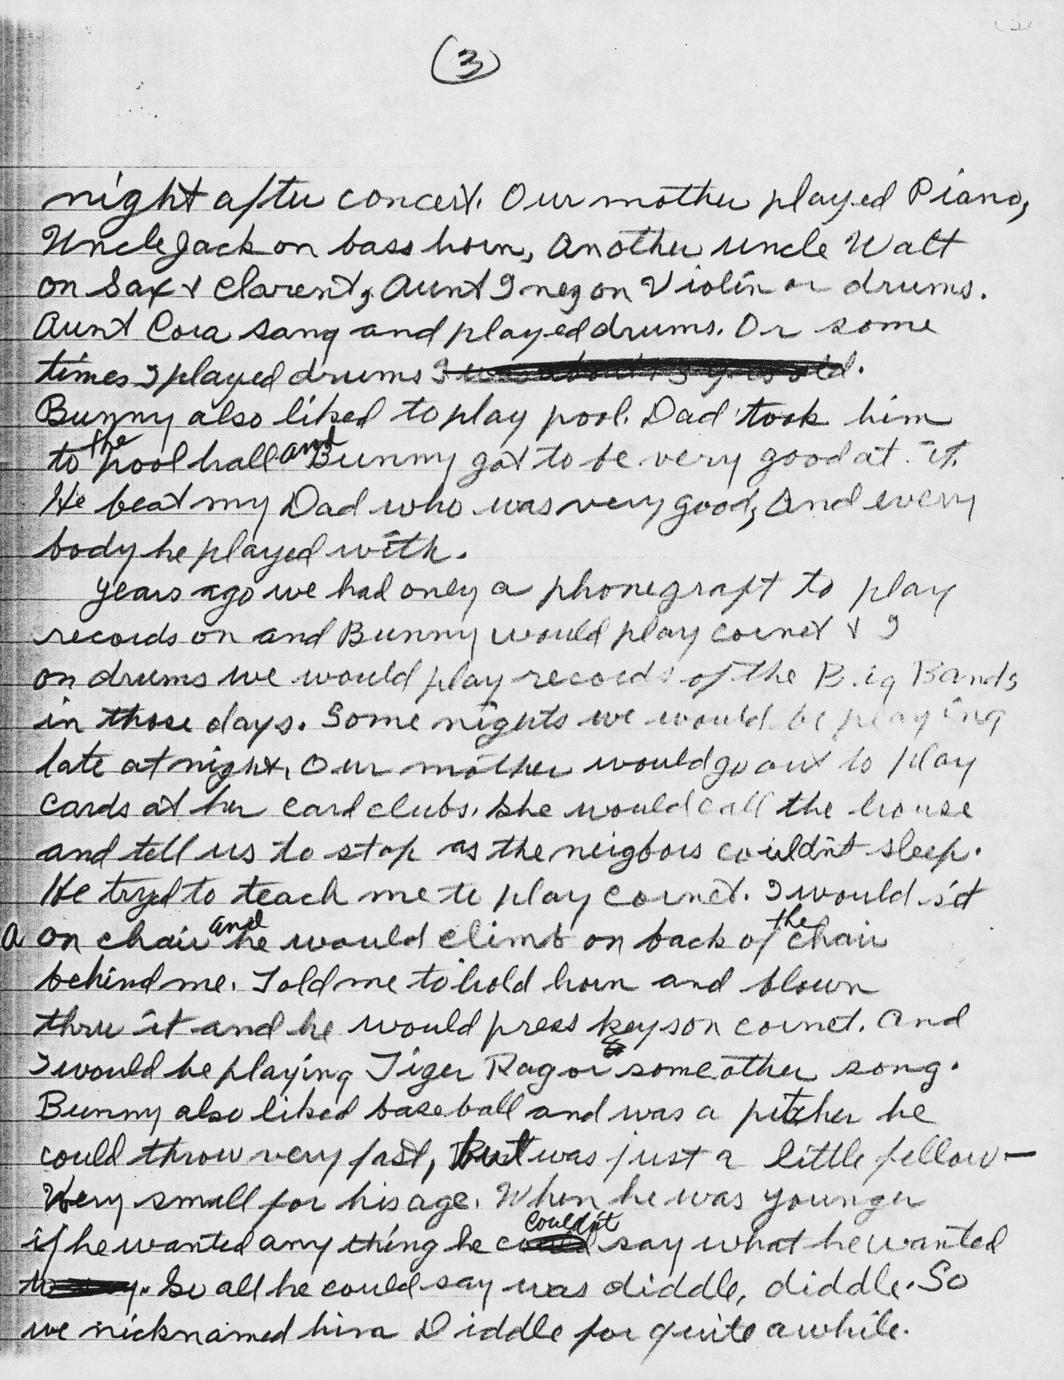 (3)
night after concert. Our mother played Piano,
Uncle Jack on bass horn, Another uncle Walt
on Sax & Clarent, Aunt Inez on Violin or drums.
Aunt Cora sang and played drums. Or some
times I played drums I was about 13 years old.
Bunny also liked to play pool. Dad took him
to the pool hall and Bunny got to be very good at it.
He beat my Dad who was very good, And every
body he played with.
Years ago we had only a phonegraft to play
records on and Bunny would play cornet & I
on drums we would play records of the Big Bands
in those days. Some nights we would be playing
late at night, Our mother would go out to play
cards at her card clubs. She would call the house
and tell us to stop as the neigbors couldn't sleep.
He tryed to teach me to play cornet. I would sit
on a chair and he would climb on back of the chair
behind me. Told me to hold horn and blown
thru it and he would press keys on cornet. And
I would be playing Tiger Rag or some other song.
Bunny also liked baseball and was a pitcher he
could throw very fast, But was just a little fellow—
Very small for his age. When he was younger
if he wanted any thing he couldn't say what he wanted
So all he could say was diddle, diddle. So
we nicknamed him Diddle for quite awhile.